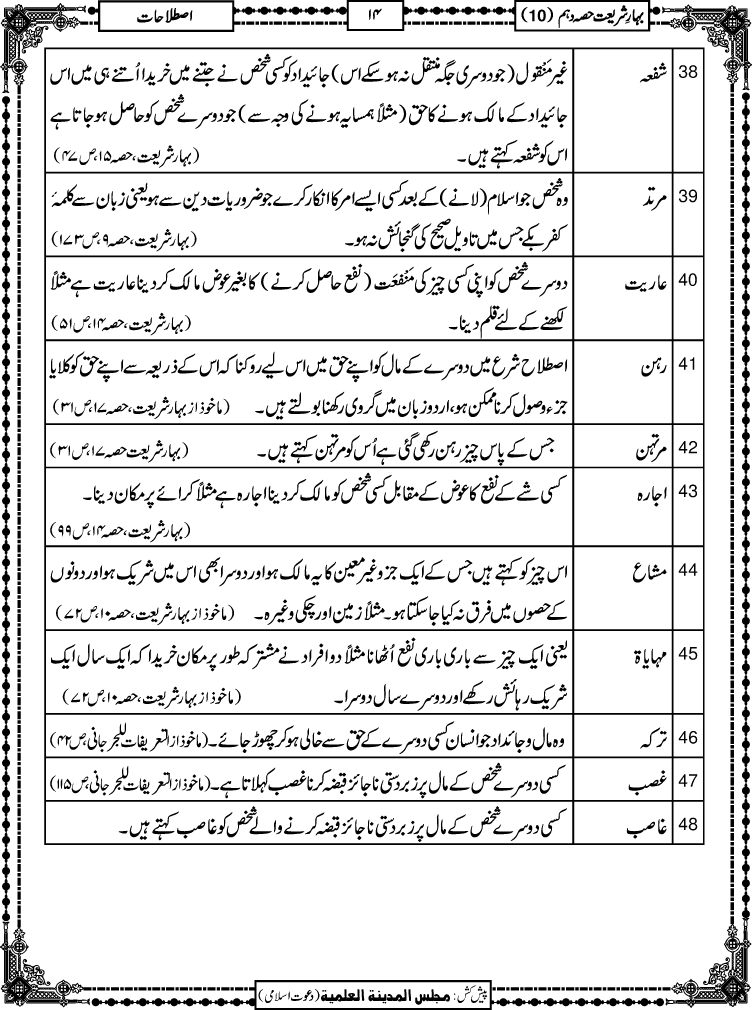 بہارِ شریعت حصہ دہم (10)
۱۴
اصطلاحات
38 شفعہ غیر مَنْقُول (جو دوسری جگہ منتقل نہ ہو سکے اس) جائیداد کو کسی شخص نے جتنے میں خریدا اُتنے ہی میں اس
جائیداد کے مالک ہونے کا حق (مثلاً ہمسایہ ہونے کی وجہ سے) جو دوسرے شخص کو حاصل ہو جاتا ہے
اس کو شفعہ کہتے ہیں۔ (بہارِ شریعت، حصہ ۱۵، ص ۴۷)
39 مرتد وہ شخص جو اسلام (لانے) کے بعد کسی ایسے امر کا انکار کرے جو ضروریات دین سے ہو یعنی زبان سے کلمۂ
کفر بکے جس میں تاویل صحیح کی گنجائش نہ ہو۔ (بہارِ شریعت، حصہ ۹، ص ۱۷۳)
40 عاریت دوسرے شخص کو اپنی کسی چیز کی مَنْفَعَت (نفع حاصل کرنے) کا بغیر عوض مالک کر دینا عاریت ہے مثلاً
لکھنے کے لئے قلم دینا۔ (بہارِ شریعت، حصہ ۱۴، ص ۵۱)
41 رہن اصطلاح شرع میں دوسرے کے مال کو اپنے حق میں اس لیے روکنا کہ اس کے ذریعہ سے اپنے حق کو کلا یا
جزء وصول کرنا ممکن ہو، اردو زبان میں گروی رکھنا بولتے ہیں۔ (ماخوذ از بہارِ شریعت، حصہ ۱۷، ص ۳۱)
42 مرتہن جس کے پاس چیز رہن رکھی گئی ہے اُس کو مرتہن کہتے ہیں۔ (بہارِ شریعت، حصہ ۱۷، ص ۳۱)
43 اجارہ کسی شے کے نفع کا عوض کے مقابل کسی شخص کو مالک کر دینا اجارہ ہے مثلاً کرائے پر مکان دینا۔
(بہارِ شریعت، حصہ ۱۴، ص ۹۹)
44 مشاع اس چیز کو کہتے ہیں جس کے ایک جزو غیر معین کا یہ مالک ہو اور دوسرا بھی اس میں شریک ہو اور دونوں
کے حصوں میں فرق نہ کیا جا سکتا ہو۔ مثلاً زمین اور چکی وغیرہ۔ (ماخوذ از بہارِ شریعت، حصہ ۱۰، ص ۷۲)
45 مہایاۃ یعنی ایک چیز سے باری باری نفع اُٹھانا مثلاً دو افراد نے مشترکہ طور پر مکان خریدا کہ ایک سال ایک
شریک رہائش رکھے اور دوسرے سال دوسرا۔ (ماخوذ از بہارِ شریعت، حصہ ۱۰، ص ۷۲)
46 ترکہ وہ مال و جائداد جو انسان کسی دوسرے کے حق سے خالی ہو کر چھوڑ جائے۔ (ماخوذ از التعریفات للجرجانی، ص ۴۲)
47 غصب کسی دوسرے شخص کے مال پر زبردستی ناجائز قبضہ کرنا غصب کہلاتا ہے۔ (ماخوذ از التعریفات للجرجانی، ص ۱۱۵)
48 غاصب کسی دوسرے شخص کے مال پر زبردستی ناجائز قبضہ کرنے والے شخص کو غاصب کہتے ہیں۔
پیش کش: مجلس المدینۃ العلمیۃ (دعوت اسلامی)